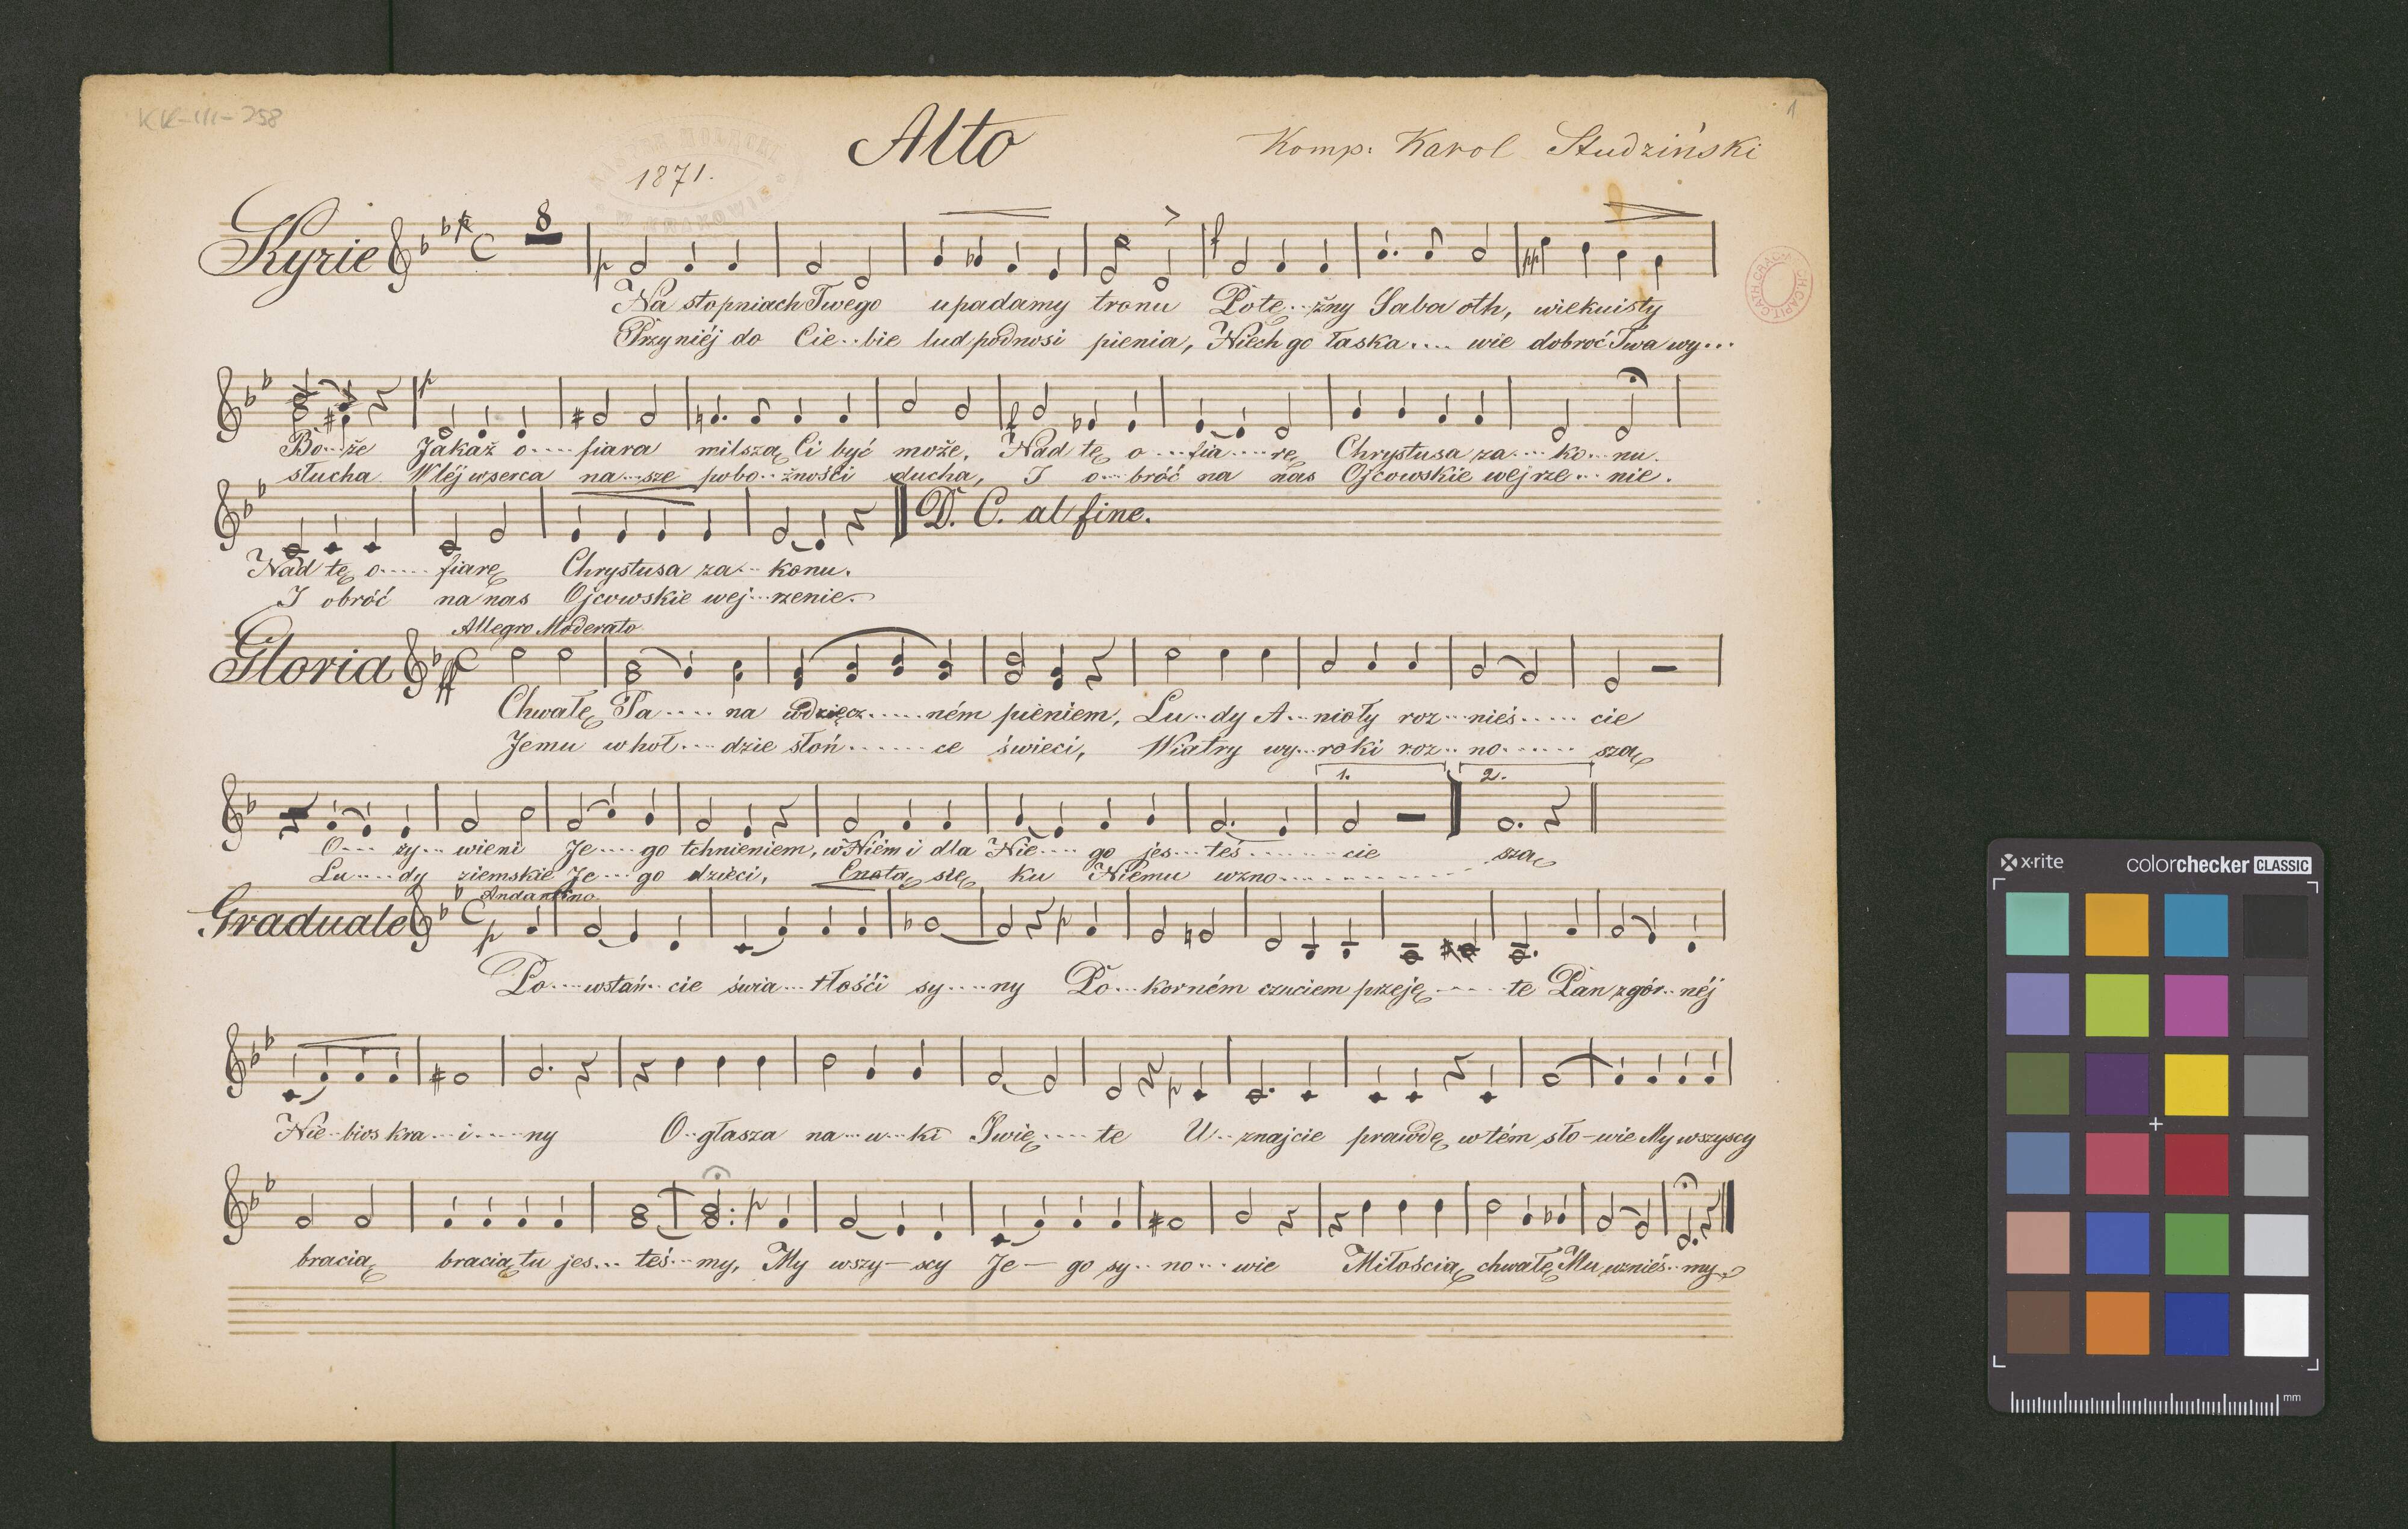 KK-III-258
1
Alto
Komp. Karol Studziński
1871.
Kyrie
8
p
f
pp
Na stopniach Twego upadamy tronu Potę..żny Sabaoth, wiekuisty
Przyniéj do Cie..bie lud podnosi pienia, Niech go łaska.... wie dobroć Twa wy...
p
f
Bo...że Jakaż o.... fiara milsza Ci być może, Nad tę o...fia....rę Chrystusa za.... ko...nu.
słucha Wléj w serca na...sze pobo..żności ducha, I o...bróć na nas Ojcowskie wejrze... nie.
D. C. al fine.
Nad tę o..... fiarę Chrystusa za... konu.
I obróć na nas Ojcowskie wej...rzenie.
Allegro Moderato
Gloria
ff
Chwałę Pa.... na wdzięcz.....ném pieniem, Lu..dy A...nioły roz...nieś..... cie
Jemu w hoł....dzie słoń....... ce świeci, Wiatry wy...roki roz.. no....... szą
1. 2.
O.... ży... wieni Je....go tchnieniem, w Niém i dla Nie.... go jes...teś......... cie szą
Lu....dy ziemskie Je...go dzieci, Cnotą się ku Niemu wzno............
Andantino.
Graduale
p
p
Po....wstań..cie świa...tłośći sy....ny Po...korném czuciem przeję.....te Pan z gór..néj
p
Nie..bios kra...i....ny O..głasza na...u...ki Swię....te U.. znajcie prawdę w tém sło-wie My wszyscy
p
bracią bracią tu jes... teś..my, My wszy-scy Je- go sy.. no... wie Miłością chwałę Mu wznieś..my
x·rite
colorchecker CLASSIC
mm